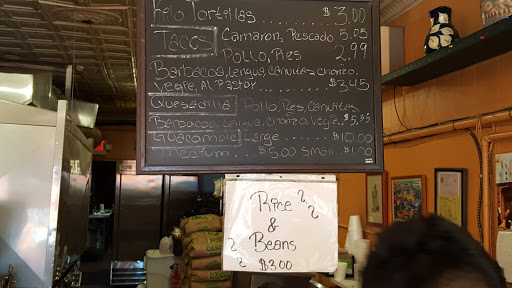 Kilo Tortillas ........ $3.00
Tacos Camaron, Pescado 5.05
Pollo, Res 2.99
Barbacoa, Lengua, Carnitas, Chorizo,
Veggie, Al Pastor ........ $3.45
Quesadilla Pollo, Res, Carnitas,
Barbacoa, Lengua, Chorizo, Veggie . $5.
Guacamole Large ........ $10.00
Medium ... $5.00 Small $1.00
Rice
&
Beans
$3.00